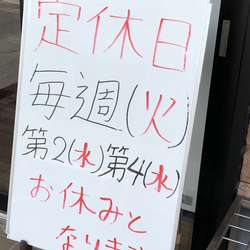 定休日
毎週(火)
第2(水)第4(水)
お休みと
なります